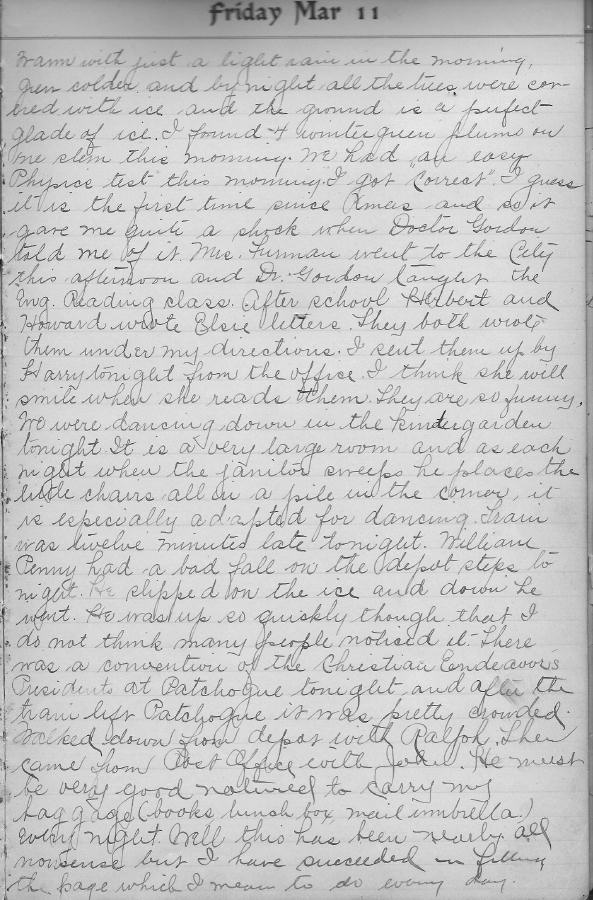 Friday Mar 11
Warm with just a light rain in the morning,
grew colder and by night all the trees were cov-
ered with ice and the ground is a perfect
glade of ice. I found 4 wintergreen plums on
one stem this morning. We had an easy
Physics test this morning. "I got correct". I guess
it is the first time since Xmas and so it
gave me quite a shock when Doctor Gordon
told me of it. Mrs. Furman went to the City
this afternoon and Dr. Gordon taught the
Eng. Reading class. After school Herbert and
Howard wrote Elsie letters. They both wrote
them under my directions. I sent them up by
Harry tonight from the office. I think she will
smile when she reads them. They are so funny.
We were dancing down in the kindergarden
tonight. It is a very large room and as each
night when the janitor sweeps he places the
little chairs all in a pile in the corner, it
is especially adapted for dancing. Train
was twelve minutes late tonight. William
Penny had a bad fall on the depot steps to
night. He slipped on the ice and down he
went. He was up so quickly though that I
do not think many people noticed it. There
was a convention of the Christian Endeavors
Presidents at Patchogue tonight and after the
train left Patchogue it was pretty crowded.
Walked down from depot with Ralph. Then
came from Post Office with John. He must
be very good natured to carry my
baggage (books lunch box mail umbrella.)
every night. Well this has been nearly all
nonsense but I have succeeded in filling
the page which I mean to do every day.